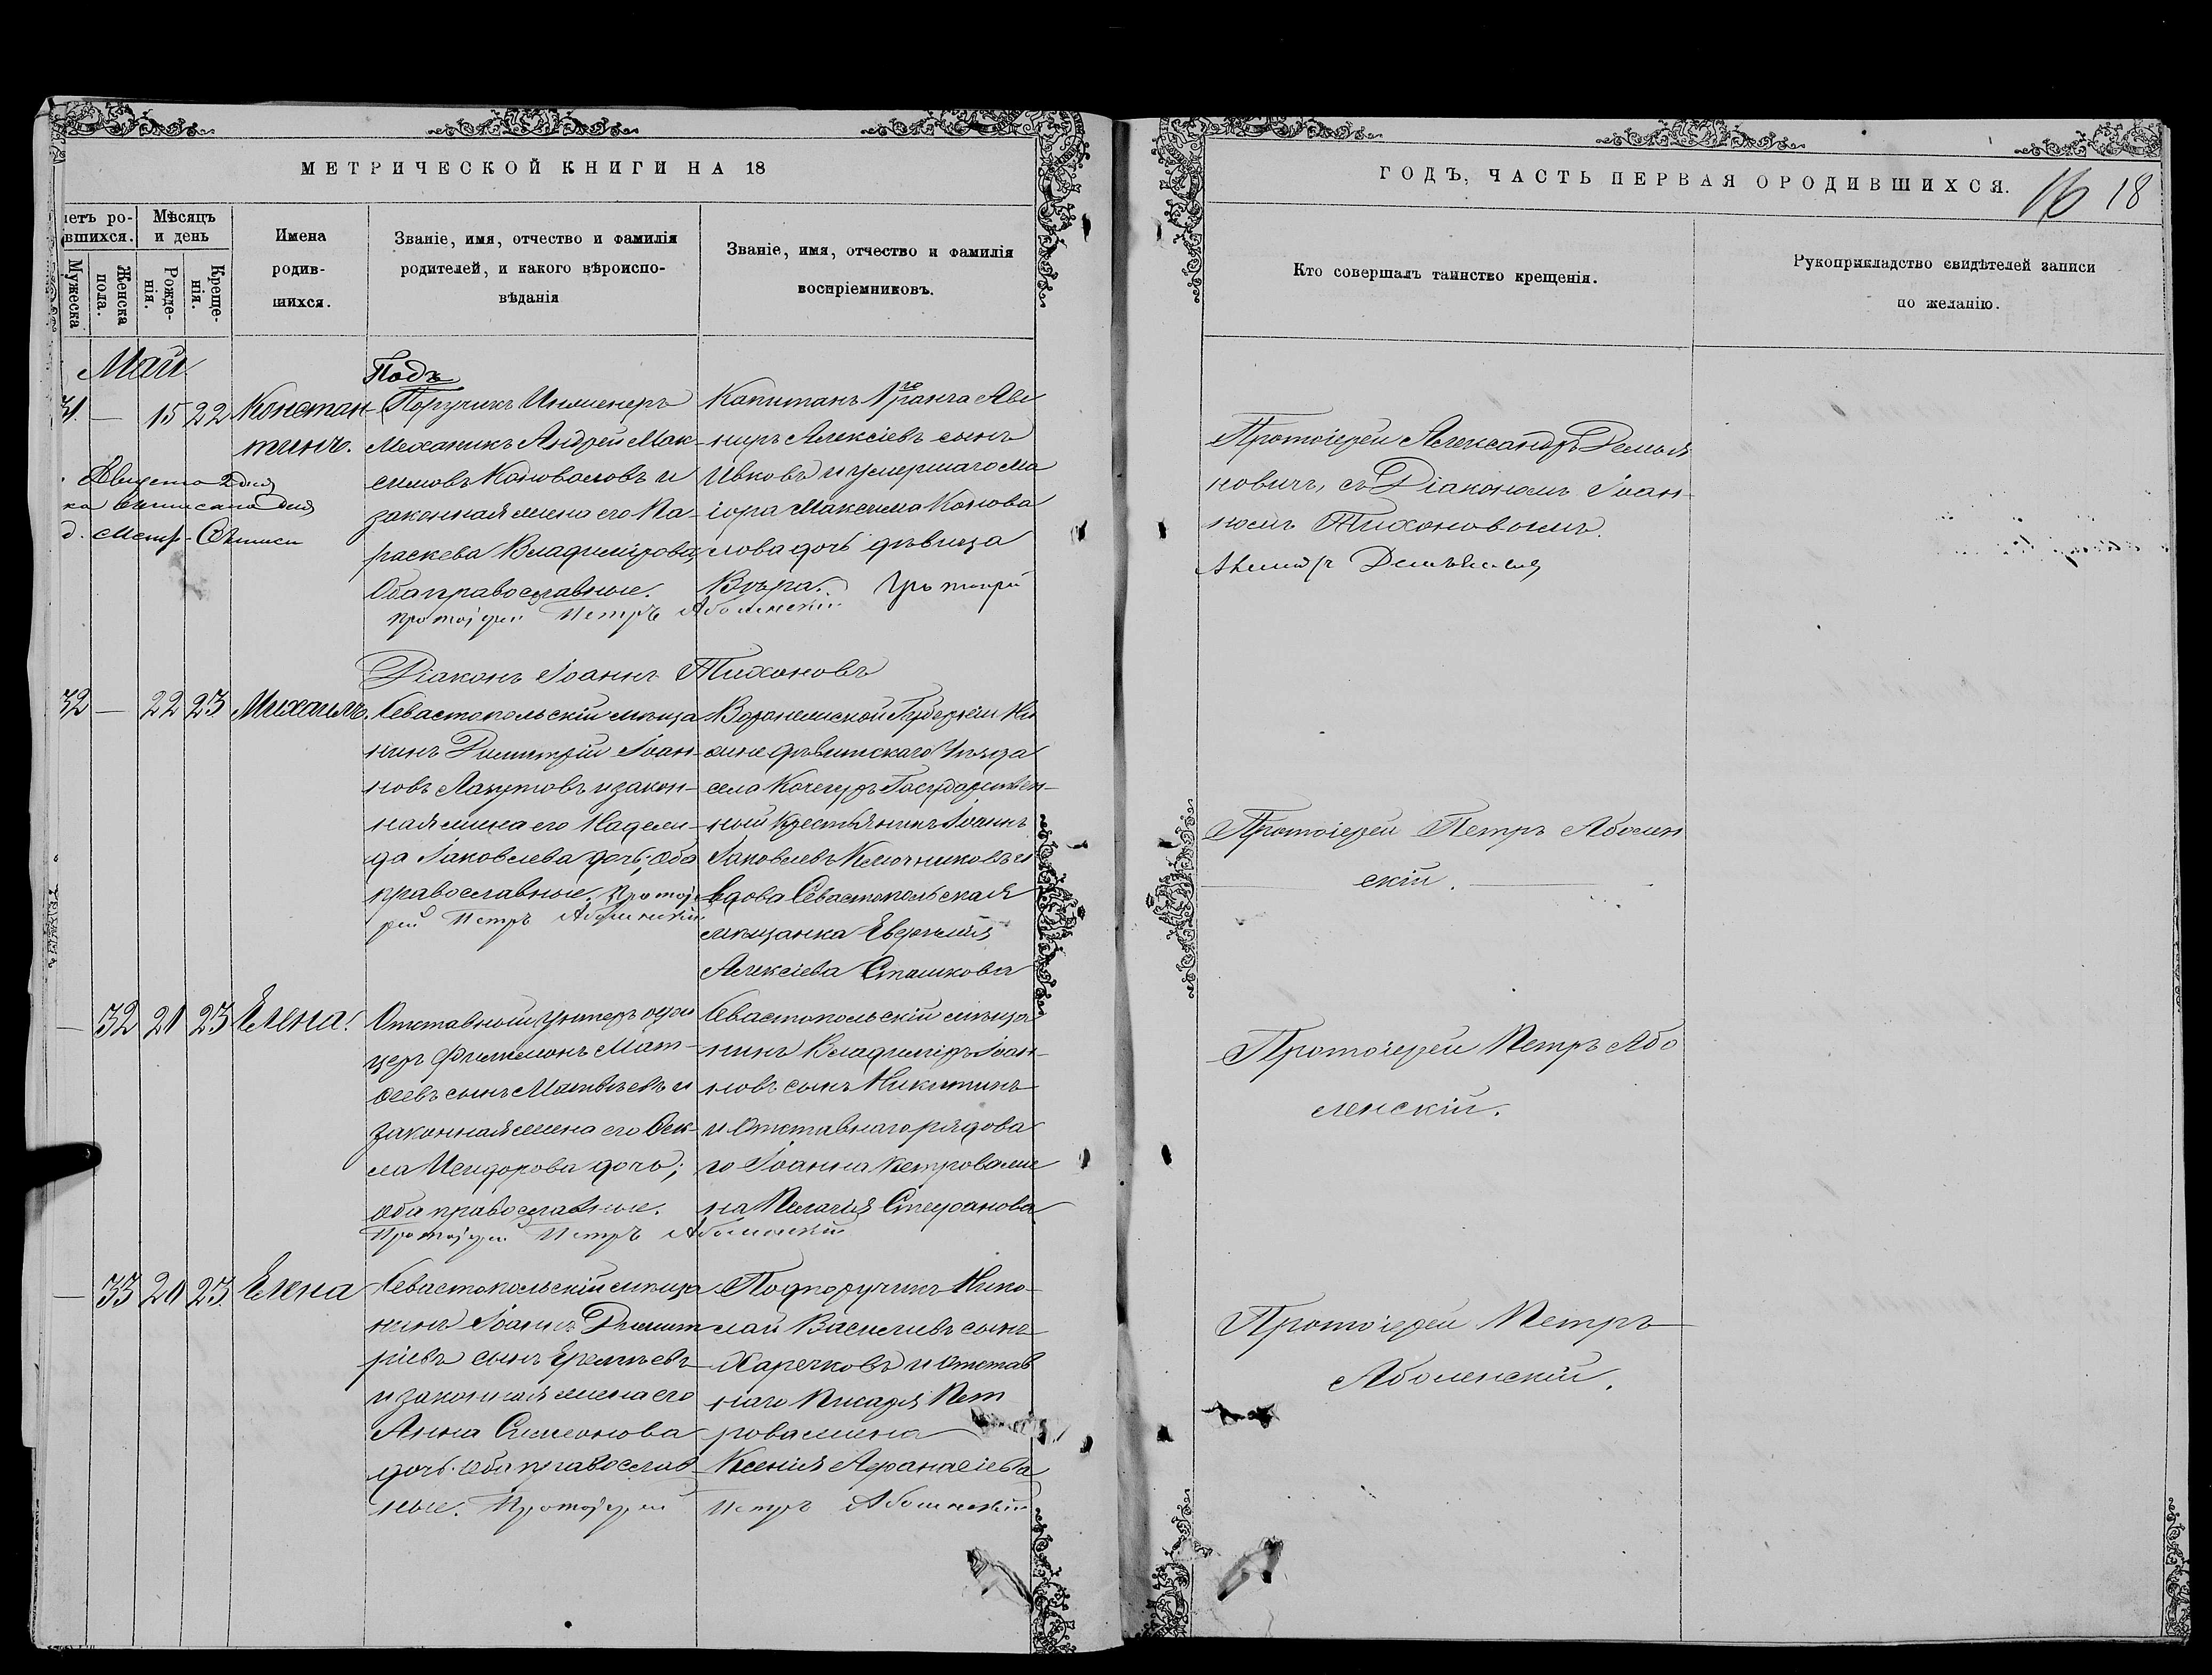 МЕТРИЧЕСКОЙ КНИГИ НА 18
ГОДЪ, ЧАСТЬ ПЕРВАЯ О РОДИВШИХСЯ.
16 18
четъ ро-
вшихся.
Мѣсяцъ
и день
Мужеска
Женска
пола.
Рожде-
нія.
Креще-
нія.
Имена
родив-
шихся.
Званіе, имя, отчество и фамилія
родителей, и какого вѣроиспо-
вѣданія
Званіе, имя, отчество и фамилія
воспріемниковъ.
Кто совершалъ таинство крещенія.
Рукоприкладство свидѣтелей записи
по желанію.
Май
31. — 15 22 Констан-
тинъ.
Августа 2 дня
выписано
Метр.
Подъ
Поручикъ Инженеръ
Механикъ Андрей Мак-
симовъ Коноваловъ и
законная жена его Па-
раскева Владимірова,
Оба православные.
Протоіерей Петръ Аболенскій
Діаконъ Іоаннъ Тихоновъ
Капитанъ 1го ранга Аве
ниръ Алексіевъ сынъ
Ивковъ и умершаго Ма
іора Максима Конова
лова дочь дѣвица
Вѣра.
Протоіерей Александръ Демья
новичъ, съ Діакономъ Іоан-
номъ Тихоновымъ.
32 — 22 23 Михаилъ.
Севастопольскій мѣща
нинъ Димитрій Іоан-
новъ Лакутовъ и закон-
ная жена его Надеж-
да Іаковлева дочь; оба
православные. Протоіе
рей Петръ Аболенскій
Воронежской Губерніи Ни
жнедѣвитскаго Уѣзда
села Кочегуръ Государствен-
ный крестьянинъ Іоаннъ
Іаковлевъ Ключниковъ и
вдова Севастопольская
мѣщанка Евфимія
Алексіева Сташкова
Протоіерей Петръ Аболен
скій.
— 32 21 23 Елена.
Отставной унтеръ офи
церъ Филимонъ Мат-
ѳеевъ сынъ Матвѣевъ и
законная жена его Ѳек-
ла Исидорова дочь;
оба православные.
Протоіерей Петръ Аболенскій
Севастопольскій мѣща
нинъ Владиміръ Іоан-
новъ сынъ Никитинъ
и Отставнаго рядова
го Іоанна Петрова же
на Пелагія Стефанова
Протоіерей Петръ Або
ленскій.
— 33 20 23. Елена
Севастопольскій мѣща
нинъ Іоаннъ Димит
ріевъ сынъ Еремѣевъ
и законная жена его
Анна Симеонова
дочь. Оба православ
ные. Протоіерей Петръ Аболенскій
Подпоручикъ Нико-
лай Васильевъ сынъ
Харечковъ и Отстав
наго Писаря Пет
рова жена
Ксенія Афанасіева
Протоіерей Петръ
Аболенскій.